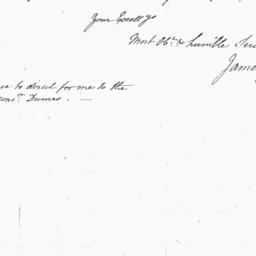 Your Excellys
Most Obt. & humble Ser
Jame
to direct for me to the
Dumas. —